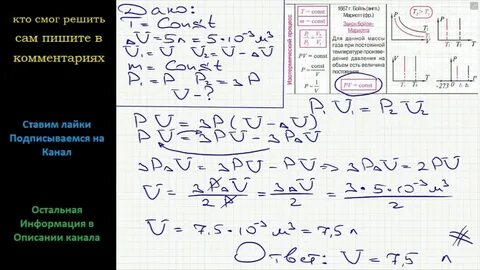 кто смог решить
сам пишите в
комментариях
Ставим лайки
Подписываемся на
Канал
Остальная
Информация в
Описании канала
Дано:
T = Const
ΔV = 5л = 5·10⁻³ м³
V₁ = V V₂ = V - ΔV
m = Const
P₁ = P P₂ = 3P
V - ?
Изотермический процесс
T = const
m = const
P₁/P₂ = V₂/V₁
P ~ 1/V
P = const/V
1667 г. Бойль (англ.)
Мариотт (фр.)
Закон Бойля-
Мариотта
Для данной массы
газа при постоянной
температуре произве-
дение давления на
объем есть величина
постоянная.
PV = const
T₂ > T₁
P₁V₁ = P₂V₂
PV = 3P(V - ΔV)
PV = 3PV - 3PΔV
3PΔV = 3PV - PV ⇒ 3PΔV = 2PV
V = 3PΔV/2P = 3ΔV/2 = 3·5·10⁻³ м³/2
V = 7,5·10⁻³ м³ = 7,5 л
Ответ: V = 7,5 л